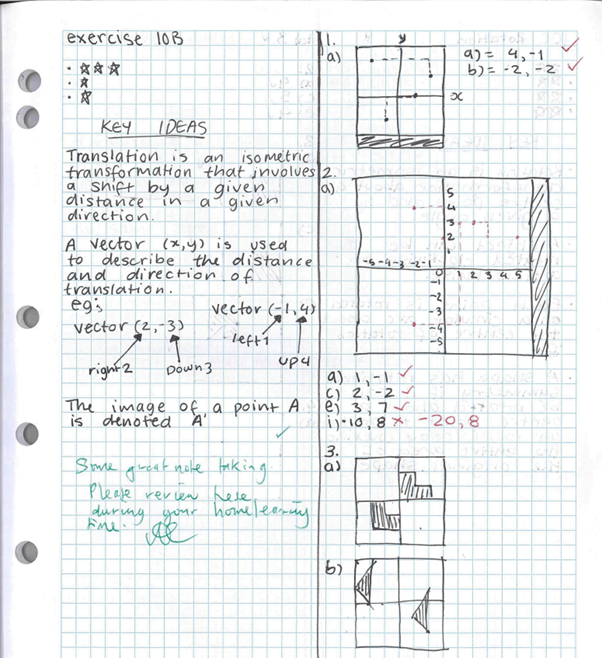 exercise 10B
KEY IDEAS
Translation is an isometric
transformation that involves
a shift by a given
distance in a given
direction.
A vector (x,y) is used
to describe the distance
and direction of
translation.
eg;
vector (2,-3)
right 2
Down 3
vector (-1,4)
left 1
up 4
The image of a point A
is denoted A'
Some great note taking
Please review these
during your home learning
time.
1.
a)
y
x
a) = 4,-1
b) = -2,-2
2.
a)
5
4
3
2
1
-5 -4 -3 -2 -1
0
1 2 3 4 5
-1
-2
-3
-4
-5
a) 1,-1
c) 2,-2
e) 3,7
i) -10,8 x -20,8
3.
a)
b)